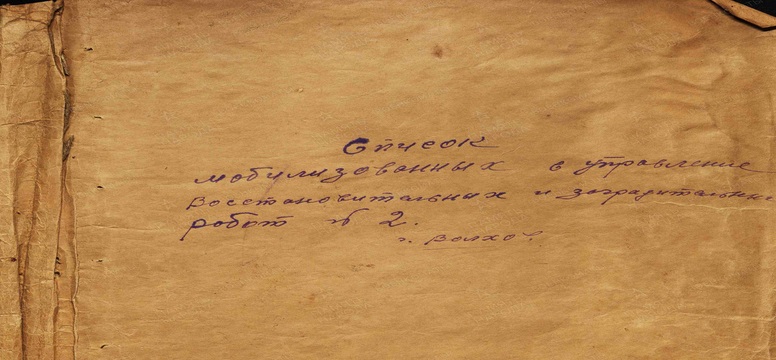 Список
мобилизованных в управление
восстановительных и заградительных
работ № 2.
г. Волхов.